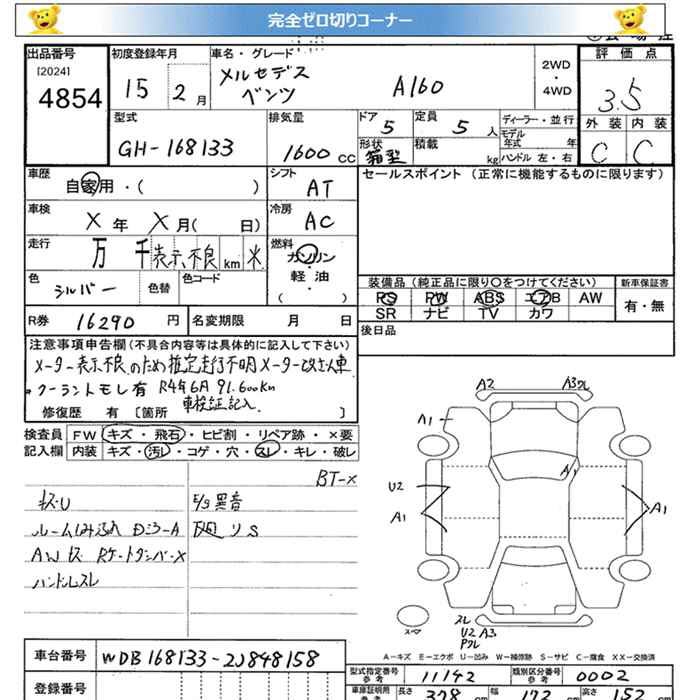 完全ゼロ切りコーナー
出品番号 初度登録年月 車名・グレード 評価点
[2024]
4854 15 2月 メルセデスベンツ A160 2WD・4WD 3.5
型式 排気量 ドア 定員 ディーラー・並行 外装 内装
GH-168133 1600cc 5 5人 モデル年式 年 C C
形状 箱型 積載 kg ハンドル 左・右
車歴 シフト セールスポイント(正常に機能するものに限ります)
自家用・( ) AT
車検 冷房
X年 X月( 日) AC
走行 燃料
万 千 表示不良 km 米 ガソリン
色 シルバー 色替 色コード 軽・油
( )
装備品(純正品に限り○をつけてください) 新車保証書
PS PW ABS エアB AW 有・無
SR ナビ TV カワ
R券 16290円 名変期限 月 日 後日品
注意事項申告欄(不具合内容等は具体的に記入して下さい)
メーター表示不良のため推定走行不明メーター改ざん車
クーラントモレ有 R4年6月 91,600km
車検証記入
修復歴 有 [箇所 ]
検査員 FW キズ・飛石・ヒビ割・リペア跡・×要
記入欄 内装 キズ・汚レ・コゲ・穴・スレ・キレ・破レ
BT-X
E/G異音
ハンドルスレ
A2 A3
A1
A1
U2
A1
A1
スレ
U2 A3
A-キズ E-エクボ U-凹み W-補修跡 S-サビ C-腐食 XX-交換済
車台番号 WDB168133-2J848158
型式指定番号 参考 11142 類別区分番号 参考 0002
登録番号
車庫証明用 参考 長さ 378 cm 幅 172 cm 高さ 152 cm